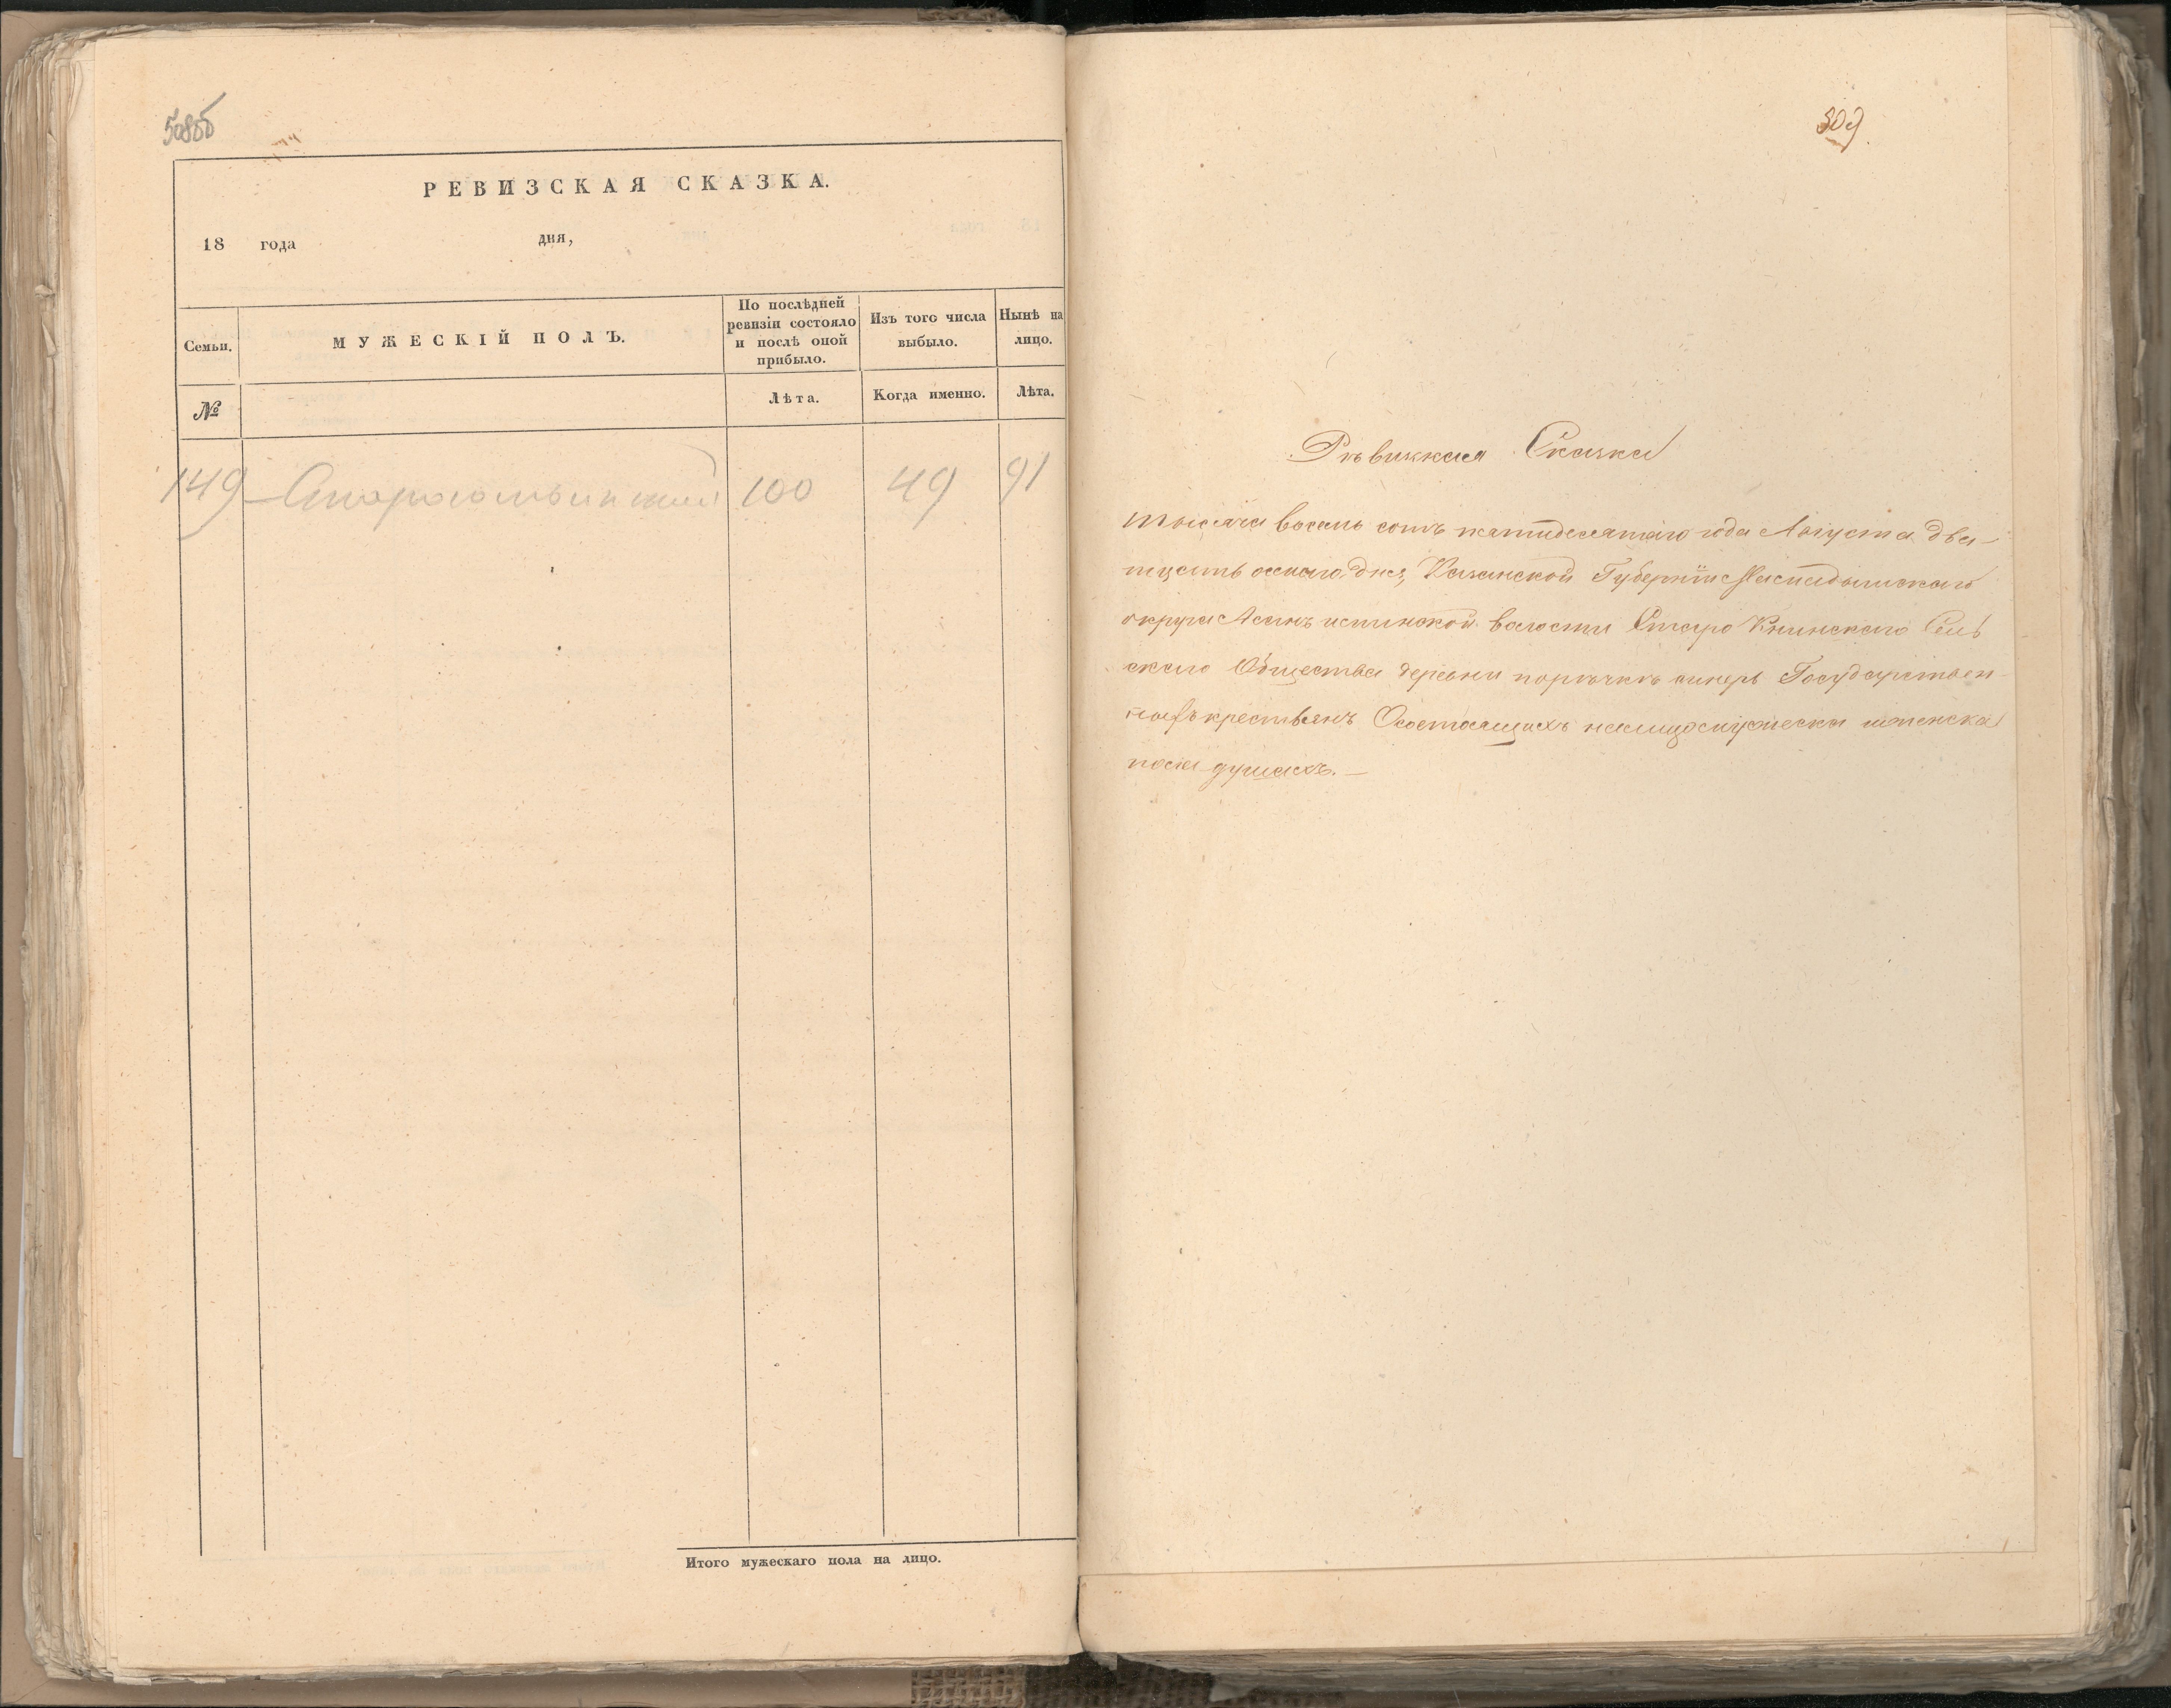 508об
РЕВИЗСКАЯ СКАЗКА.
18 года дня,
Семьи.
МУЖЕСКІЙ ПОЛЪ.
По послѣдней
ревизіи состояло
и послѣ оной
прибыло.
Изъ того числа
выбыло.
Нынѣ на
лицо.
№
Лѣта.
Когда именно.
Лѣта.
149 100 49 91
Итого мужескаго пола на лицо.
509
Сказка
тысяча восемь сотъ пятидесятаго года Августа два-
тцать осмаго дня, Казанской Губерніи
округа волости Старо Сель
скаго Общества деревни Государствен
крестьянъ Осостоящихъ налицо мужеска женска
пола душахъ.